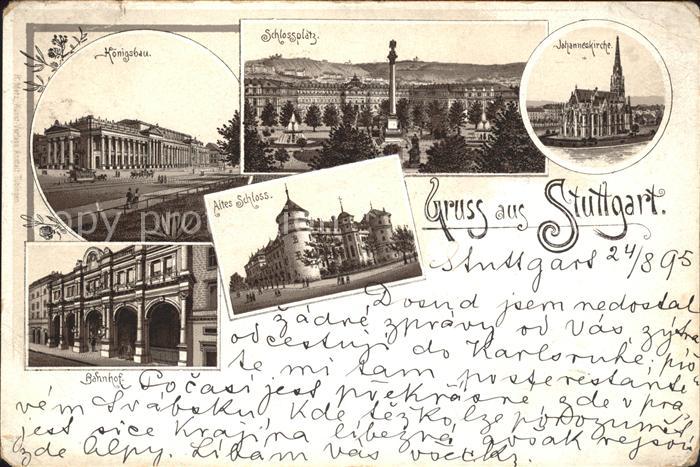 Königsbau.
Schlossplatz.
Johanneskirche.
Altes Schloss.
Bahnhof.
Gruss aus Stuttgart.
Stuttgart 24/8 95
Dosud jsem nedostal
žádné zprávy od Vás, zýtra
odcestuji do Karlsruhe, piš
te mi tam posterestante
Počasí jest překrásné zde v pra
vém Švábsku kde těžko lze porozumět
jest sice krajina líbezná avšak nejsou
zde Alpy. Líbám vás všecky.